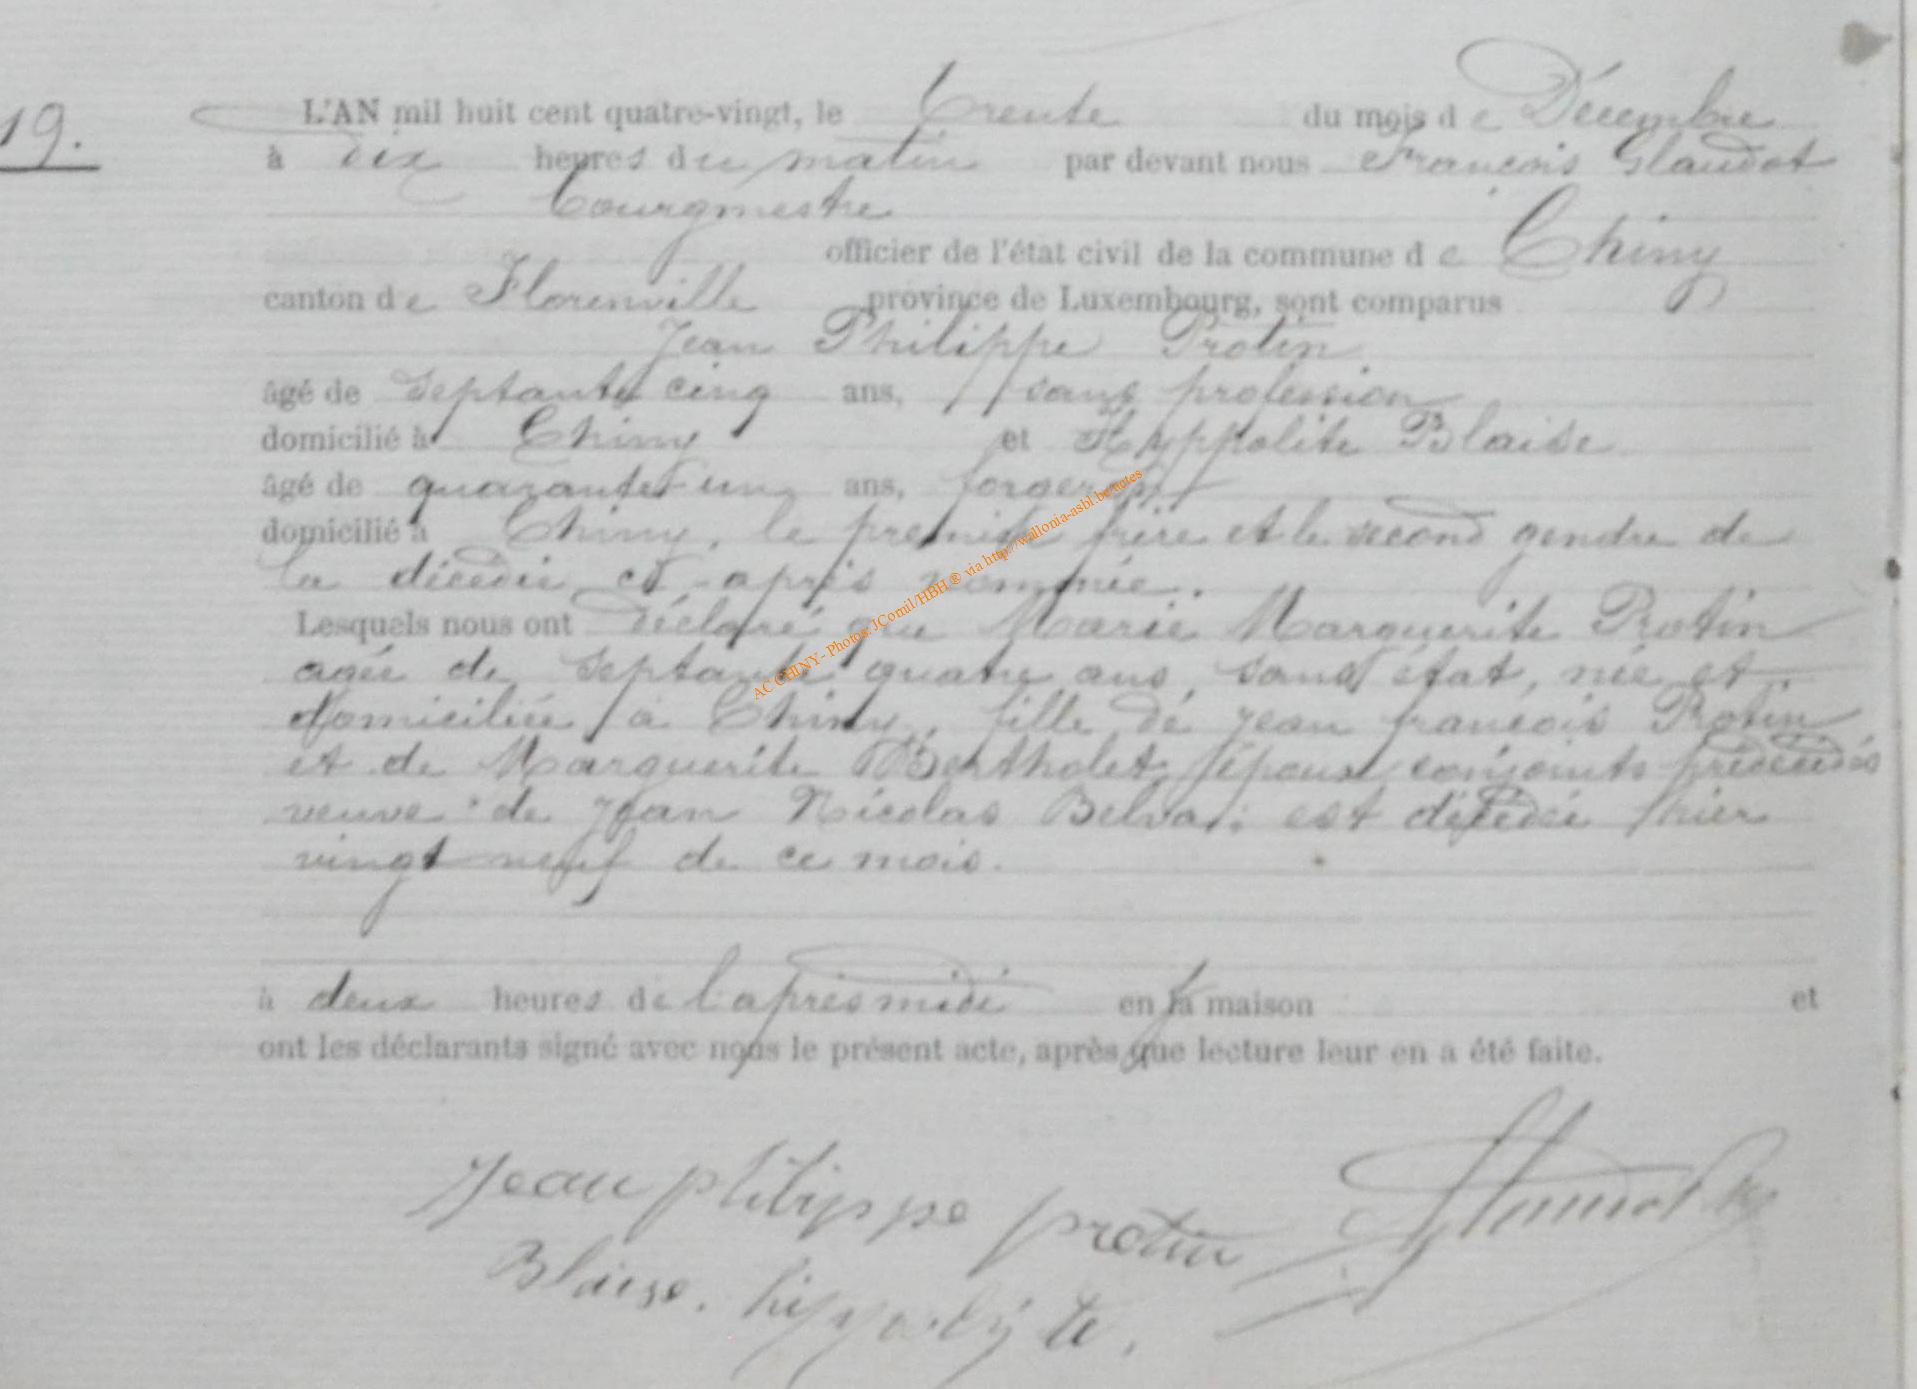 19.
L'AN mil huit cent quatre-vingt, le trente du mois de Décembre
à dix heures du matin par devant nous François Glaudot
bourgmestre
officier de l'état civil de la commune de Chiny
canton de Florenville province de Luxembourg, sont comparus
Jean Philippe Protin
âgé de septante cinq ans, sans profession
domicilié à Chiny et Hyppolite Blaise
âgé de quarante un ans, forgeron
domicilié à Chiny, le premier frère et le second gendre de
la décédée ci-après nommée.
Lesquels nous ont déclaré que Marie Marguerite Protin
agée de septante quatre ans, sans état, née et
domiciliée à Chiny, fille de Jean françois Protin
et de Marguerite Bertholet, époux conjoints prédécédés
veuve de Jean Nicolas Belva; est décédée hier
vingt neuf de ce mois.
à deux heures de l'après midi en sa maison et
ont les déclarants signé avec nous le présent acte, après que lecture leur en a été faite.
Jean philippe protin Glaudot
Blaise. hippolyte.
AC CHINY - Photos: JComil/HBH ® via http://wallonia-asbl.be/actes